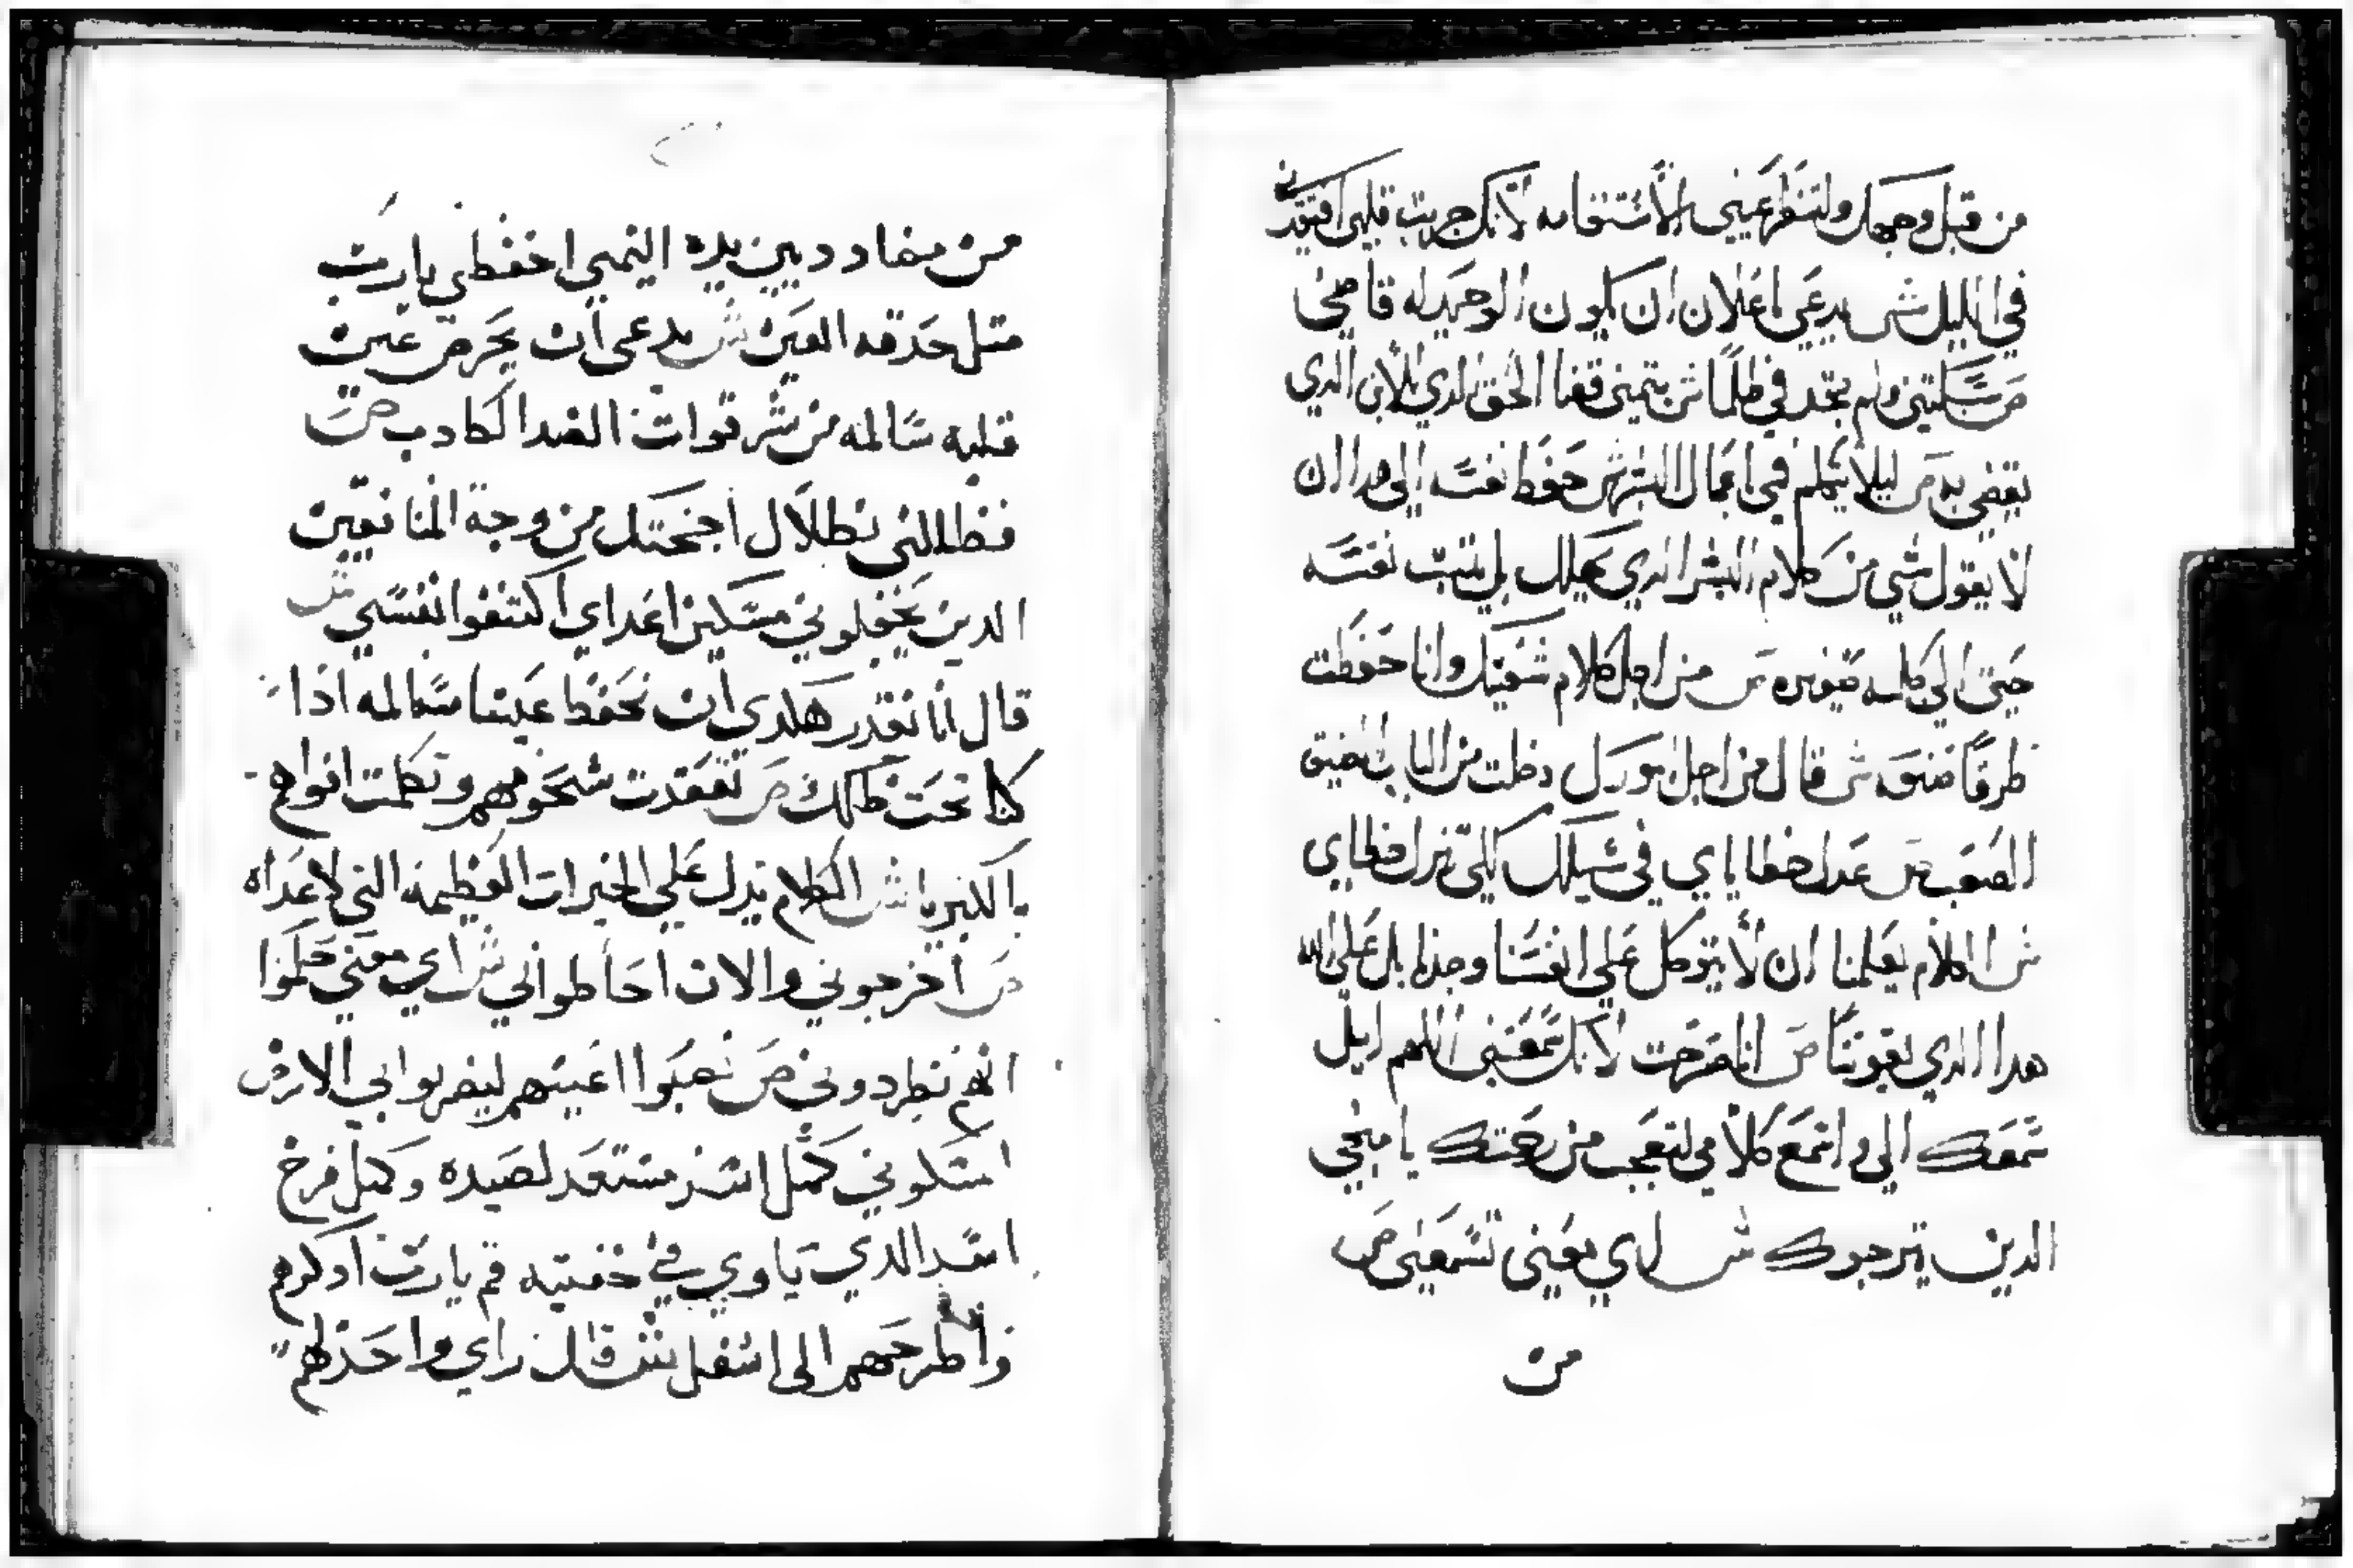 من قبل وجهك ولتنظر عيني الاستقامه لانك جربت قلبي افتقدتني
في الليل ش يدعي اعلان ان يكون الوحيد له قاضي
ص سبكتني ولم تجد في ظلمًا ش يتمني قضا الحق الدي للابن الدي
يقضي به ص ليلا يتكلم في اعمال البشر ش حفظ نفسه الي هدا ان
لا يقول شي من كلام البشر الدي يهلك بل يتبت نفسه
حتي الي كلمه صغيره ص من اجل كلام شفتيك وانا حفظت
طرقًا صعبه ش قال من اجل دخلت من الباب الضيق
الصعب ص عدل خطاي في سبيلك لكي تزل خطاي
ش الكلام يعلمنا ان لا يتوكل علي انفسنا وحدنا بل علي الله
هدا الدي يقوينا ص انا صرخت لانك سمعتني اللهم ايل
سمعك الي واسمع كلامي لتعجب من رحمتك يا منجي
الدين يترجوك ش اي يعني تسمعني ص
من
من مضاددين يده اليمني احفظني يارب
متل حدقه العين ش يدعي ان يحرص عين
قلبه سالمه من شر قوات الضد الكادب ص
فظللني بظلال اجنحتك من وجه المنافقين
الدين يجفلوني مسكين اعداي اكتنفوا نفسي ش
قال انا نقدر هكدي ان نحفظ عيننا سالمه اذا
كنا تحت ظلك ص تفقدت شحومهم وتكلمت افواههم
بالكبريا ش الكلام يدل علي الخيرات العظيمه التي لاعداه
ص اخرجوني والان احاطوا بي ش اي معني حكموا
انهم يطردوني ص نصبوا اعينهم ليضربوا بي الارض
استكوني كمتل اسد مستعد لصيده وكمتل فرخ
اسد الدي ياوي في خفيته قم يارب ادركهم
واطرحهم الي اسفل ش قال راي واحد لهم